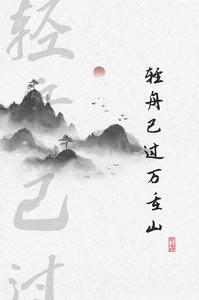 轻舟已过万重山
轻舟已过